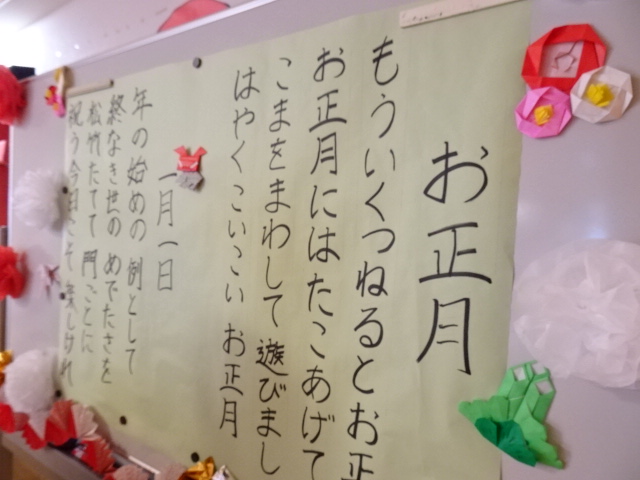 お正月
もういくつねるとお正
お正月にはたこあげて
こまをまわして遊びまし
はやくこいこい お正月
一月一日
年の始めの 例として
終なき世の めでたさを
松竹たてて 門ごとに
祝う今日こそ 楽しけれ